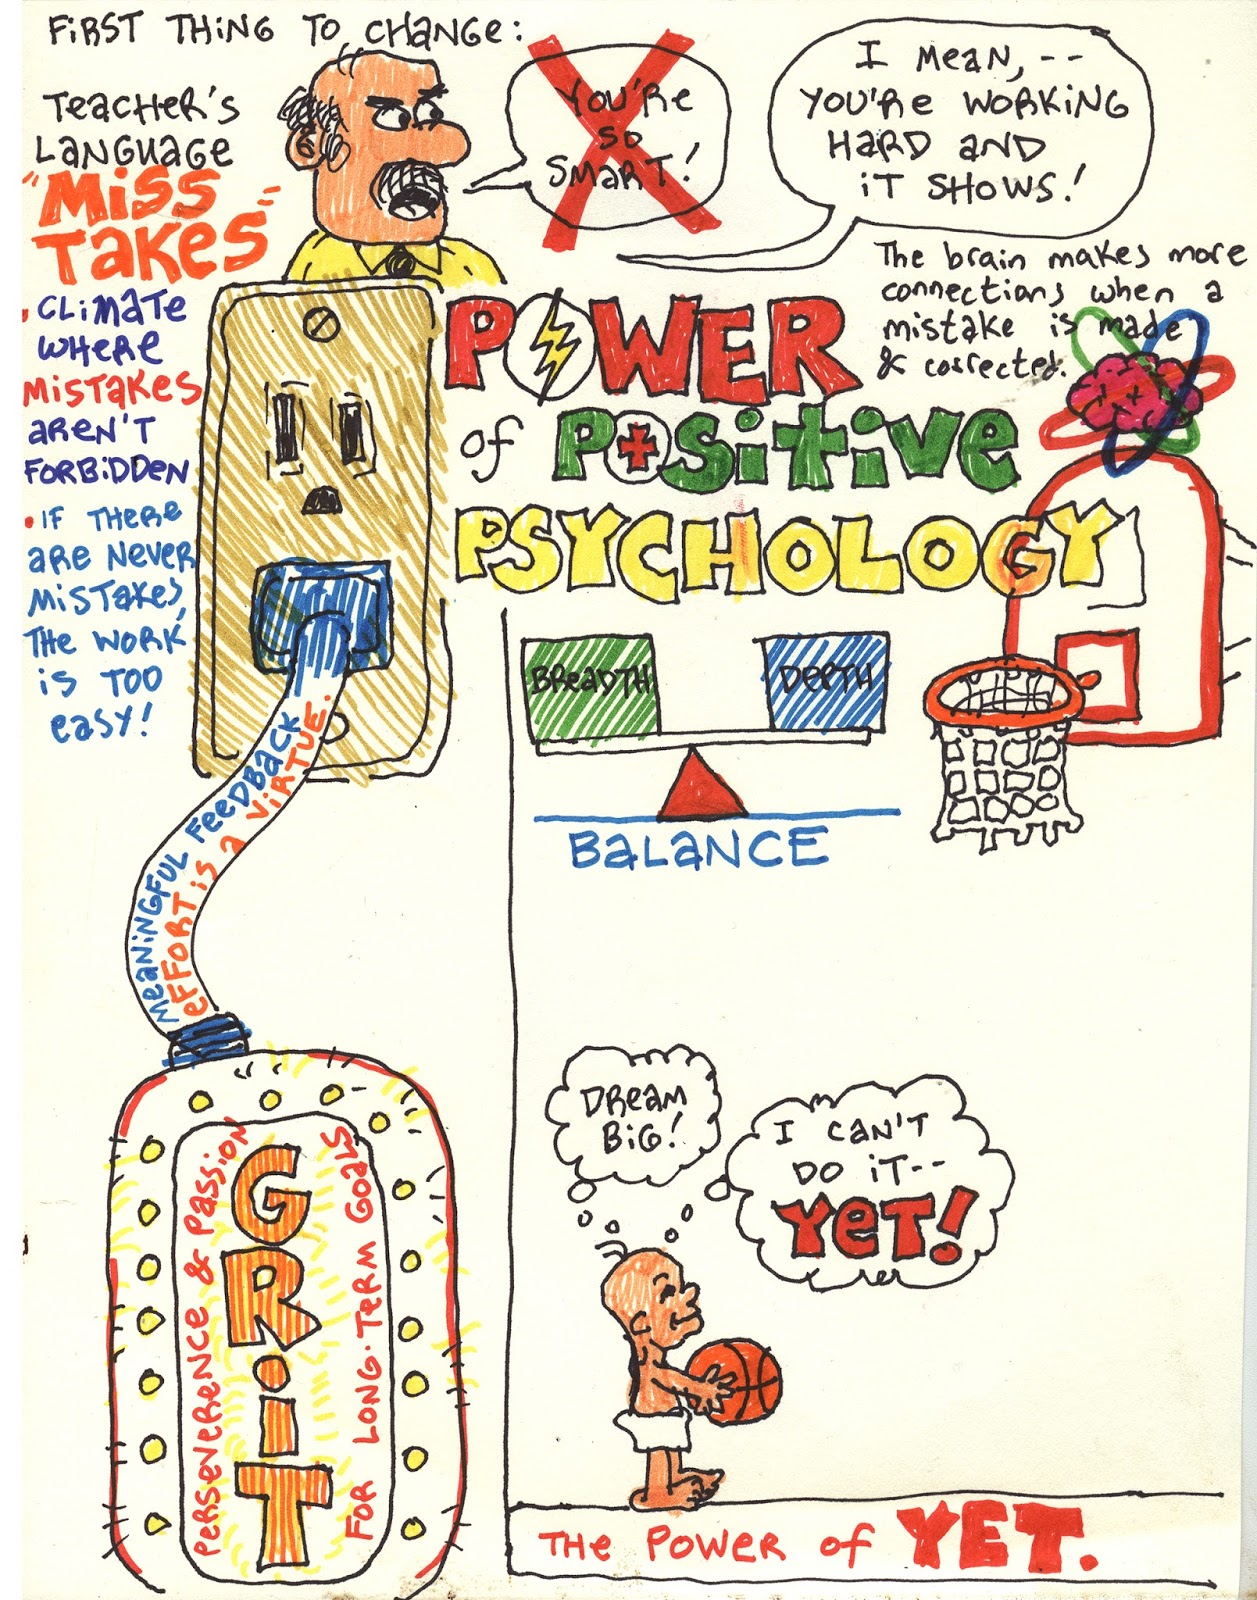 FiRST THiNG TO CHANGE:
TeacHeR'S
LaNGUaGe
"MiSS
TaKeS"
• CLiMaTe
WHeRe
MiSTaKeS
aReN'T
FoRBiDDeN
• iF THeRe
aRe NeVeR
MiSTaKes,
THe WORK
iS TOO
easy!
YOU'Re
SO
SMaRT!
I MeaN, --
YOU'Re WORKiNG
HaRD aND
iT SHOWS!
The brain makes more
connections when a
mistake is made
& corrected.
POWER
of POSitive
PSYCHOLOGY
BReaDTH
DePTH
BaLaNCE
MeaNiNGFUL FeeDBacK
eFFORT iS a ViRTUE.
PeRSeVeReNCe & PaSSioN
GRiT
FoR LONG-TeRM GoaLS
DReaM
BiG!
I CaN'T
DO iT--
YeT!
THe POWeR of YET.